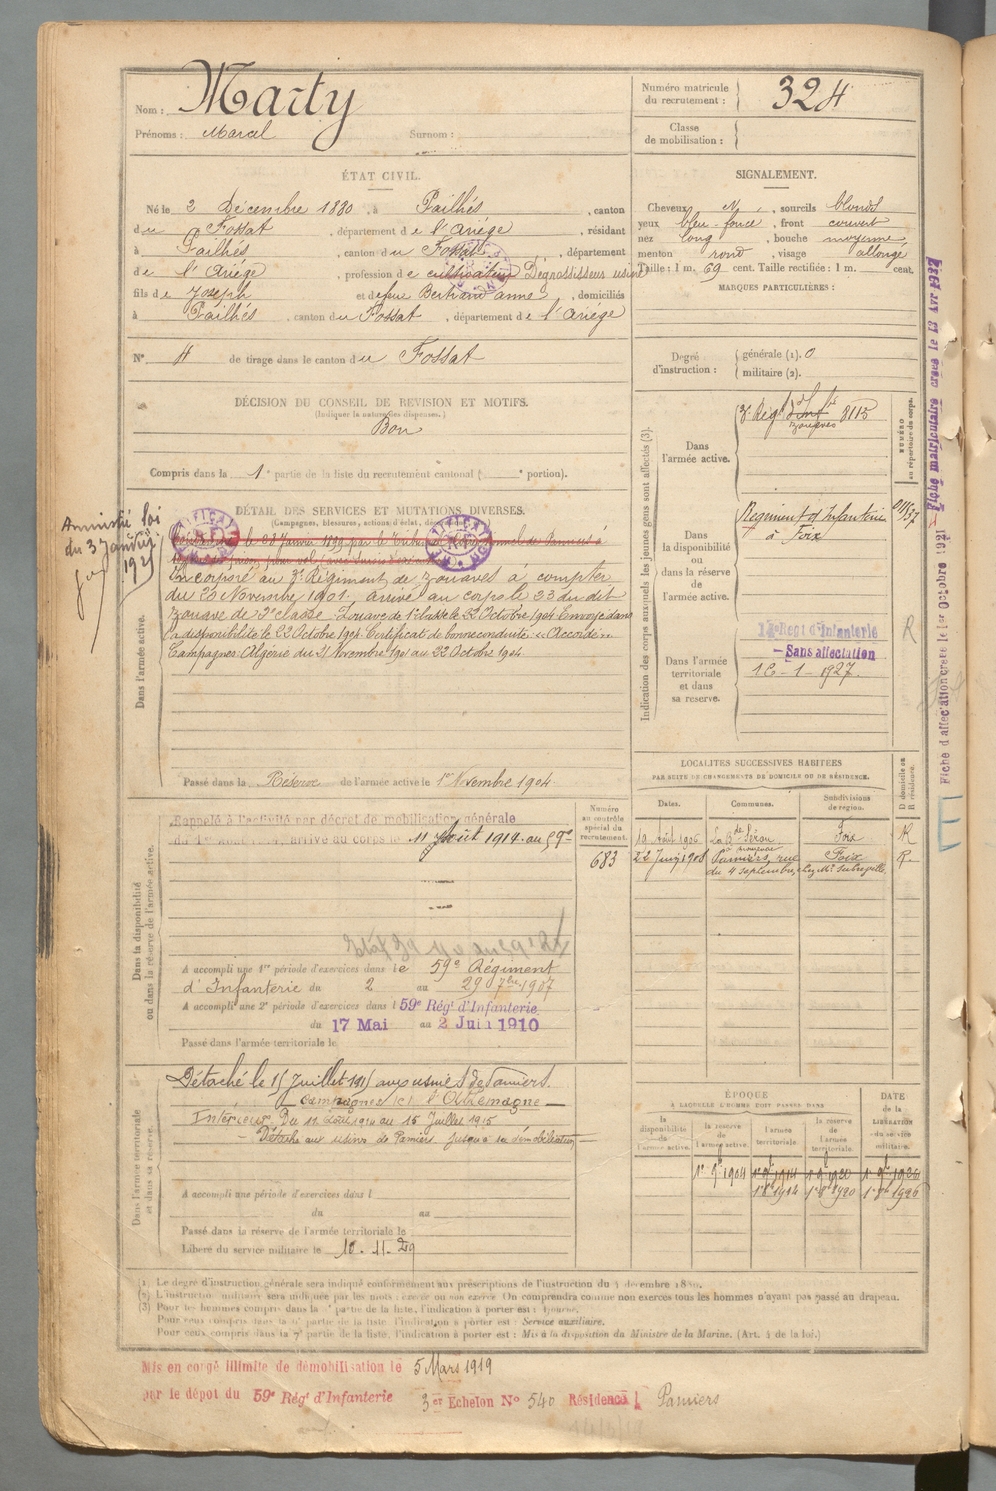 Nom : Marty
Prénoms : Marcel Surnom :
Numéro matricule du recrutement : 324
Classe de mobilisation :
ÉTAT CIVIL.
Né le 2 Décembre 1880, à Pailhés, canton
du Fossat, département de l'Ariège, résidant
à Pailhés, canton du Fossat, département
de l'Ariège, profession de cultivateur Dégrossisseur usine
fils de Joseph et de feu Bertrand anne, domiciliés
à Pailhés, canton du Fossat, département de l'Ariège
N° 4 de tirage dans le canton du Fossat
SIGNALEMENT.
Cheveux N, sourcils blonds
yeux bleu-foncé, front couvert
nez long, bouche moyenne
menton rond, visage allongé
Taille : 1 m. 69 cent. Taille rectifiée : 1 m. cent.
MARQUES PARTICULIÈRES :
Degré d'instruction : générale (1). 0
militaire (2).
DÉCISION DU CONSEIL DE REVISION ET MOTIFS.
(Indiquer la nature des dispenses.)
Bon
Compris dans la 1e partie de la liste du recrutement cantonal ( e portion).
DÉTAIL DES SERVICES ET MUTATIONS DIVERSES.
(Campagnes, blessures, actions d'éclat, décorations
Amnistié loi
du 3 Janvier
1925
le 28 Janvier 1899 par le Tribunal
Dans l'armée active.
Incorporé au 3e Régiment de zouaves à compter
du 20 Novembre 1901. arrivé au corps le 23 du dit
Zouave de 2e classe. Zouave de 1e classe le 22 Octobre 1904. Envoyé dans
la disponibilité le 22 Octobre 1904. Certificat de bonne conduite "Accordé"
Campagnes: Algérie du 21 Novembre 1901 au 22 Octobre 1904
Passé dans la Réserve de l'armée active le 1er Novembre 1904
Indication des corps auxquels les jeunes gens sont affectés (3).
NUMÉRO au répertoire du corps.
Dans l'armée active.
3e Régt d'Infie
zouaves 8115
Dans la disponibilité ou dans la réserve de l'armée active.
Régiment d'Infanterie
à Foix
Dans l'armée territoriale et dans sa réserve.
Regt d'Infanterie
Sans affectation
10-1-1927.
R
Fiche matriculaire créée le
Fiche d'affectation créée le 1er Octobre 1921
LOCALITÉS SUCCESSIVES HABITÉES
PAR SUITE DE CHANGEMENTS DE DOMICILE OU DE RÉSIDENCE.
Dates. Communes. Subdivisions de région. D domicile ou R résidence.
19 Août 1906 La Bde Sérou Foix R
22 Juin 1908 Pamiers, rue Foix R.
du 4 septembre, chez Mr
Dans la disponibilité ou dans la réserve de l'armée active.
Numéro au contrôle spécial du recrutement.
683
Rappelé à l'activité par décret de mobilisation générale
du 1er Août 1914, arrivé au corps le 11 Août 1914 au 59e
A accompli une 1re période d'exercices dans le 59e Régiment
d'Infanterie du 2 au 29 7bre 1907
A accompli une 2e période d'exercices dans l 59e Régt d'Infanterie
du 17 Mai au 2 Juin 1910
Passé dans l'armée territoriale le
Dans l'armée territoriale et dans sa réserve.
Détaché le 15 Juillet 1915 aux usines de Pamiers.
Campagnes: C. l'Allemagne
Intérieur, Du 11 Août 1914 au 15 Juillet 1915
Détaché aux usines de Pamiers jusqu'à sa démobilisation
A accompli une période d'exercices dans l
du au
Passé dans la réserve de l'armée territoriale le
Libéré du service militaire le 10.11.29
ÉPOQUE
A LAQUELLE L'HOMME DOIT PASSER DANS
DATE de la LIBÉRATION du service militaire.
la disponibilité de l'armée active. la réserve de l'armée active. l'armée territoriale. la réserve de l'armée territoriale.
1er 9bre 1904 1er 9bre 1914 1er 9bre 1920 1er 9bre 1926
1er 8bre 1914 1er 8bre 1920 1er 8bre 1926
(1) Le degré d'instruction générale sera indiqué conformément aux prescriptions de l'instruction du 4 décembre 1889.
(2) L'instruction militaire sera indiquée par les mots : exercé ou non exercé. On comprendra comme non exercés tous les hommes n'ayant pas passé au drapeau.
(3) Pour les hommes compris dans la e partie de la liste, l'indication à porter est : Ajourné.
Pour ceux compris dans la 6e partie de la liste, l'indication à porter est : Service auxiliaire.
Pour ceux compris dans la 7e partie de la liste, l'indication à porter est : Mis à la disposition du Ministre de la Marine. (Art. 4 de la loi.)
Mis en congé illimité de démobilisation le 5 Mars 1919
par le dépôt du 59e Régt d'Infanterie 3er Echelon N° 540 Résidence : Pamiers